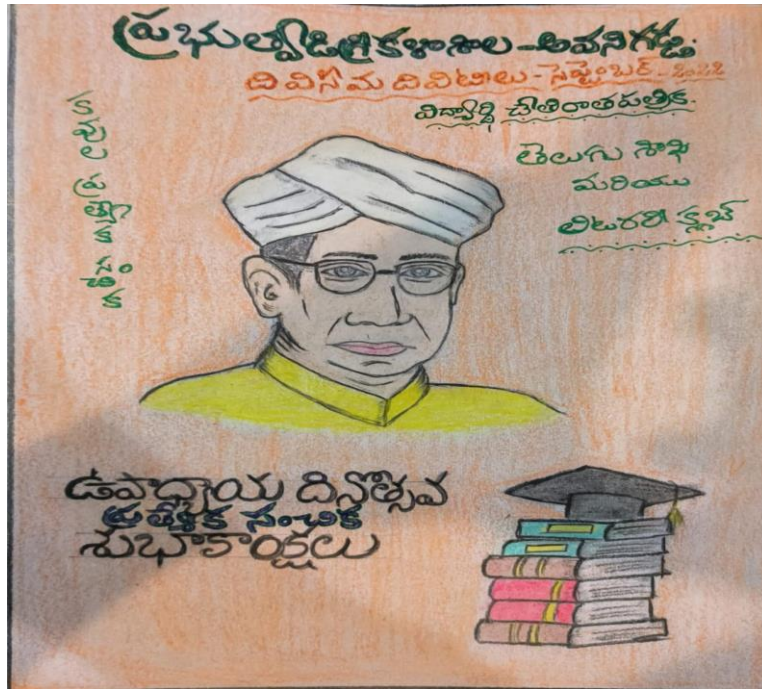 ప్రభుత్వ డిగ్రీ కళాశాల - అవనిగడ్డ.
దివిసీమ దివిటీలు - సెప్టెంబర్ - 2022
విద్యార్థి చేతిరాత పత్రిక.
తెలుగు శాఖ
మరియు
లిటరరీ క్లబ్
కవుల ప్రత్యేక సంచిక
ఉపాధ్యాయ దినోత్సవ
ప్రత్యేక సంచిక
శుభాకాంక్షలు